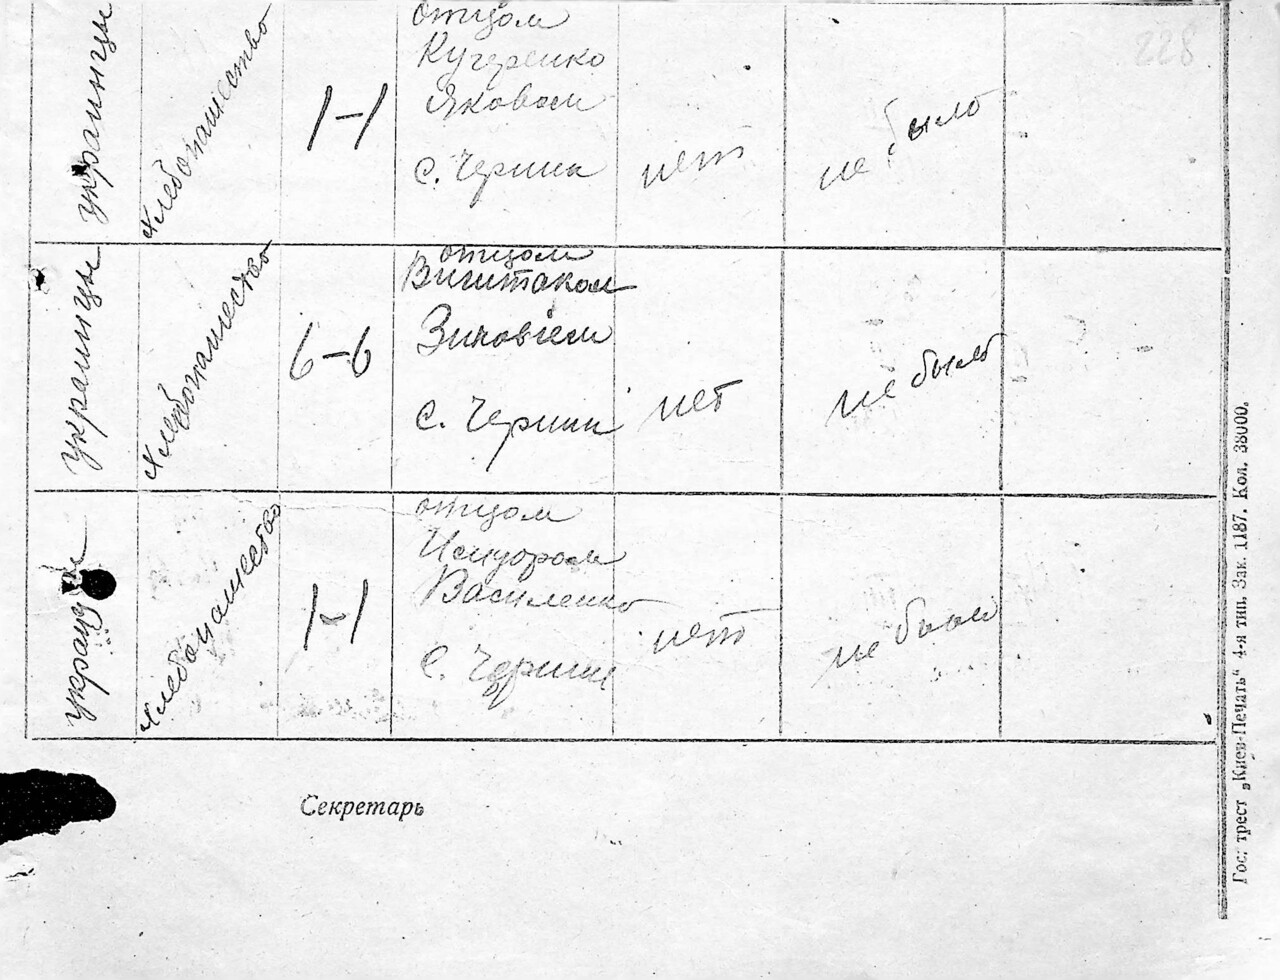 228
украинцы
хлебопашество
1-1
отцом
Кучеренко
Яковом
с. Черпин
нет
не было
украинцы
хлебопашество
6-6
отцом
Зиновіем
с. Черпин
нет
не было
хлебопашество
1-1
отцом
Исидором
Василенко
с. Черпин
нет
не было
Секретарь
Гос. трест „Киев-Печать" 4-я тип. Зак. 1187. Кол. 38000.